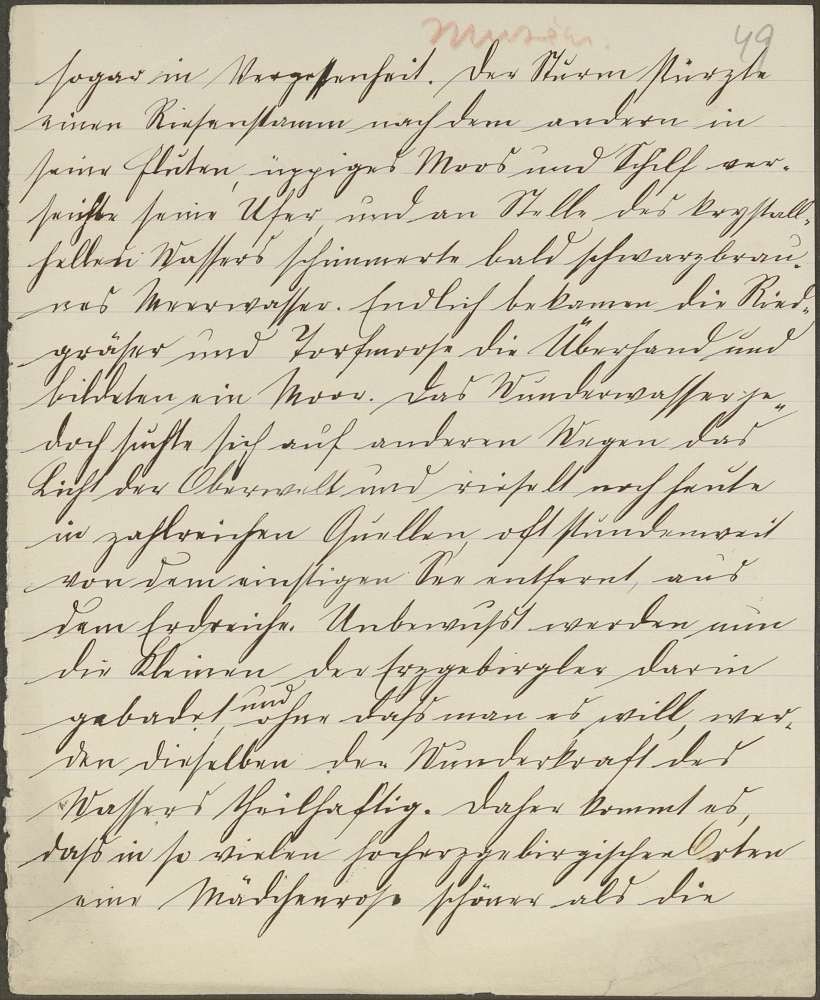 49
sogar in Vergessenheit. Der Sturm stürzte
einen Riesenstamm nach dem andern in
seine Fluten, üppiges Moos und Schilf ver-
seichte seine Ufer, und an Stelle des krystall-
hellen Wassers schimmerte bald schwarzbrau-
nes Meerwasser. Endlich bekamen die Ried-
gräser und Torfmoose die Überhand und
bildeten ein Moor. Das Wunderwasser je-
doch suchte sich auf anderen Wegen das
Licht der Oberwelt und rieselt noch heute
in zahlreichen Quellen, oft stundenweit
von dem einstigen See entfernt, aus
dem Erdreiche. Unbewußt werden nun
die Kleinen der Erzgebirgler darin
gebadet und ohne daß man es will, wer-
den dieselben der Wunderkraft des
Wassers theilhaftig. Daher kommt es,
daß in so vielen hocherzgebirgischen Orten
eine Mädchenrose schöner als die